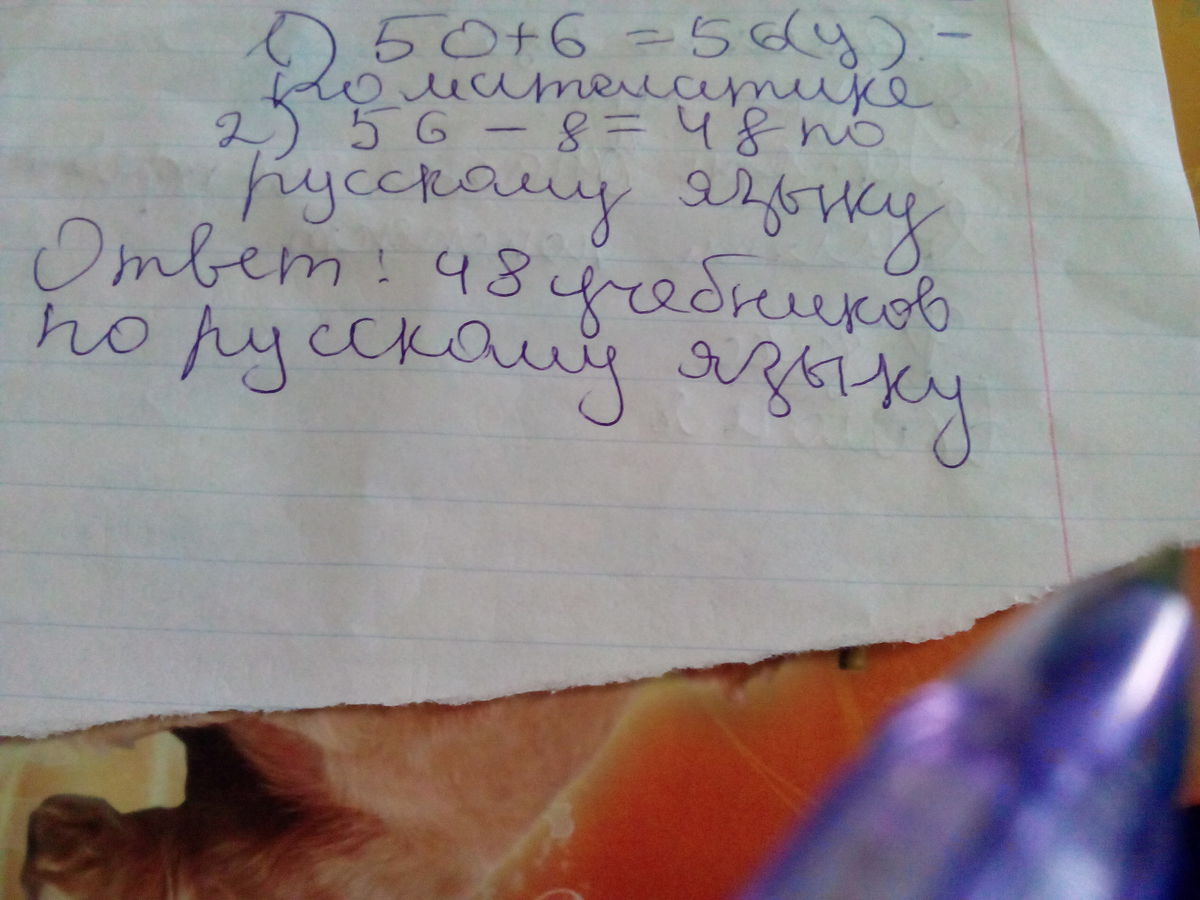 1) 50+6 = 56(у) -
по математике
2) 56 - 8 = 48 по
русскому языку
Ответ: 48 учебников
по русскому языку